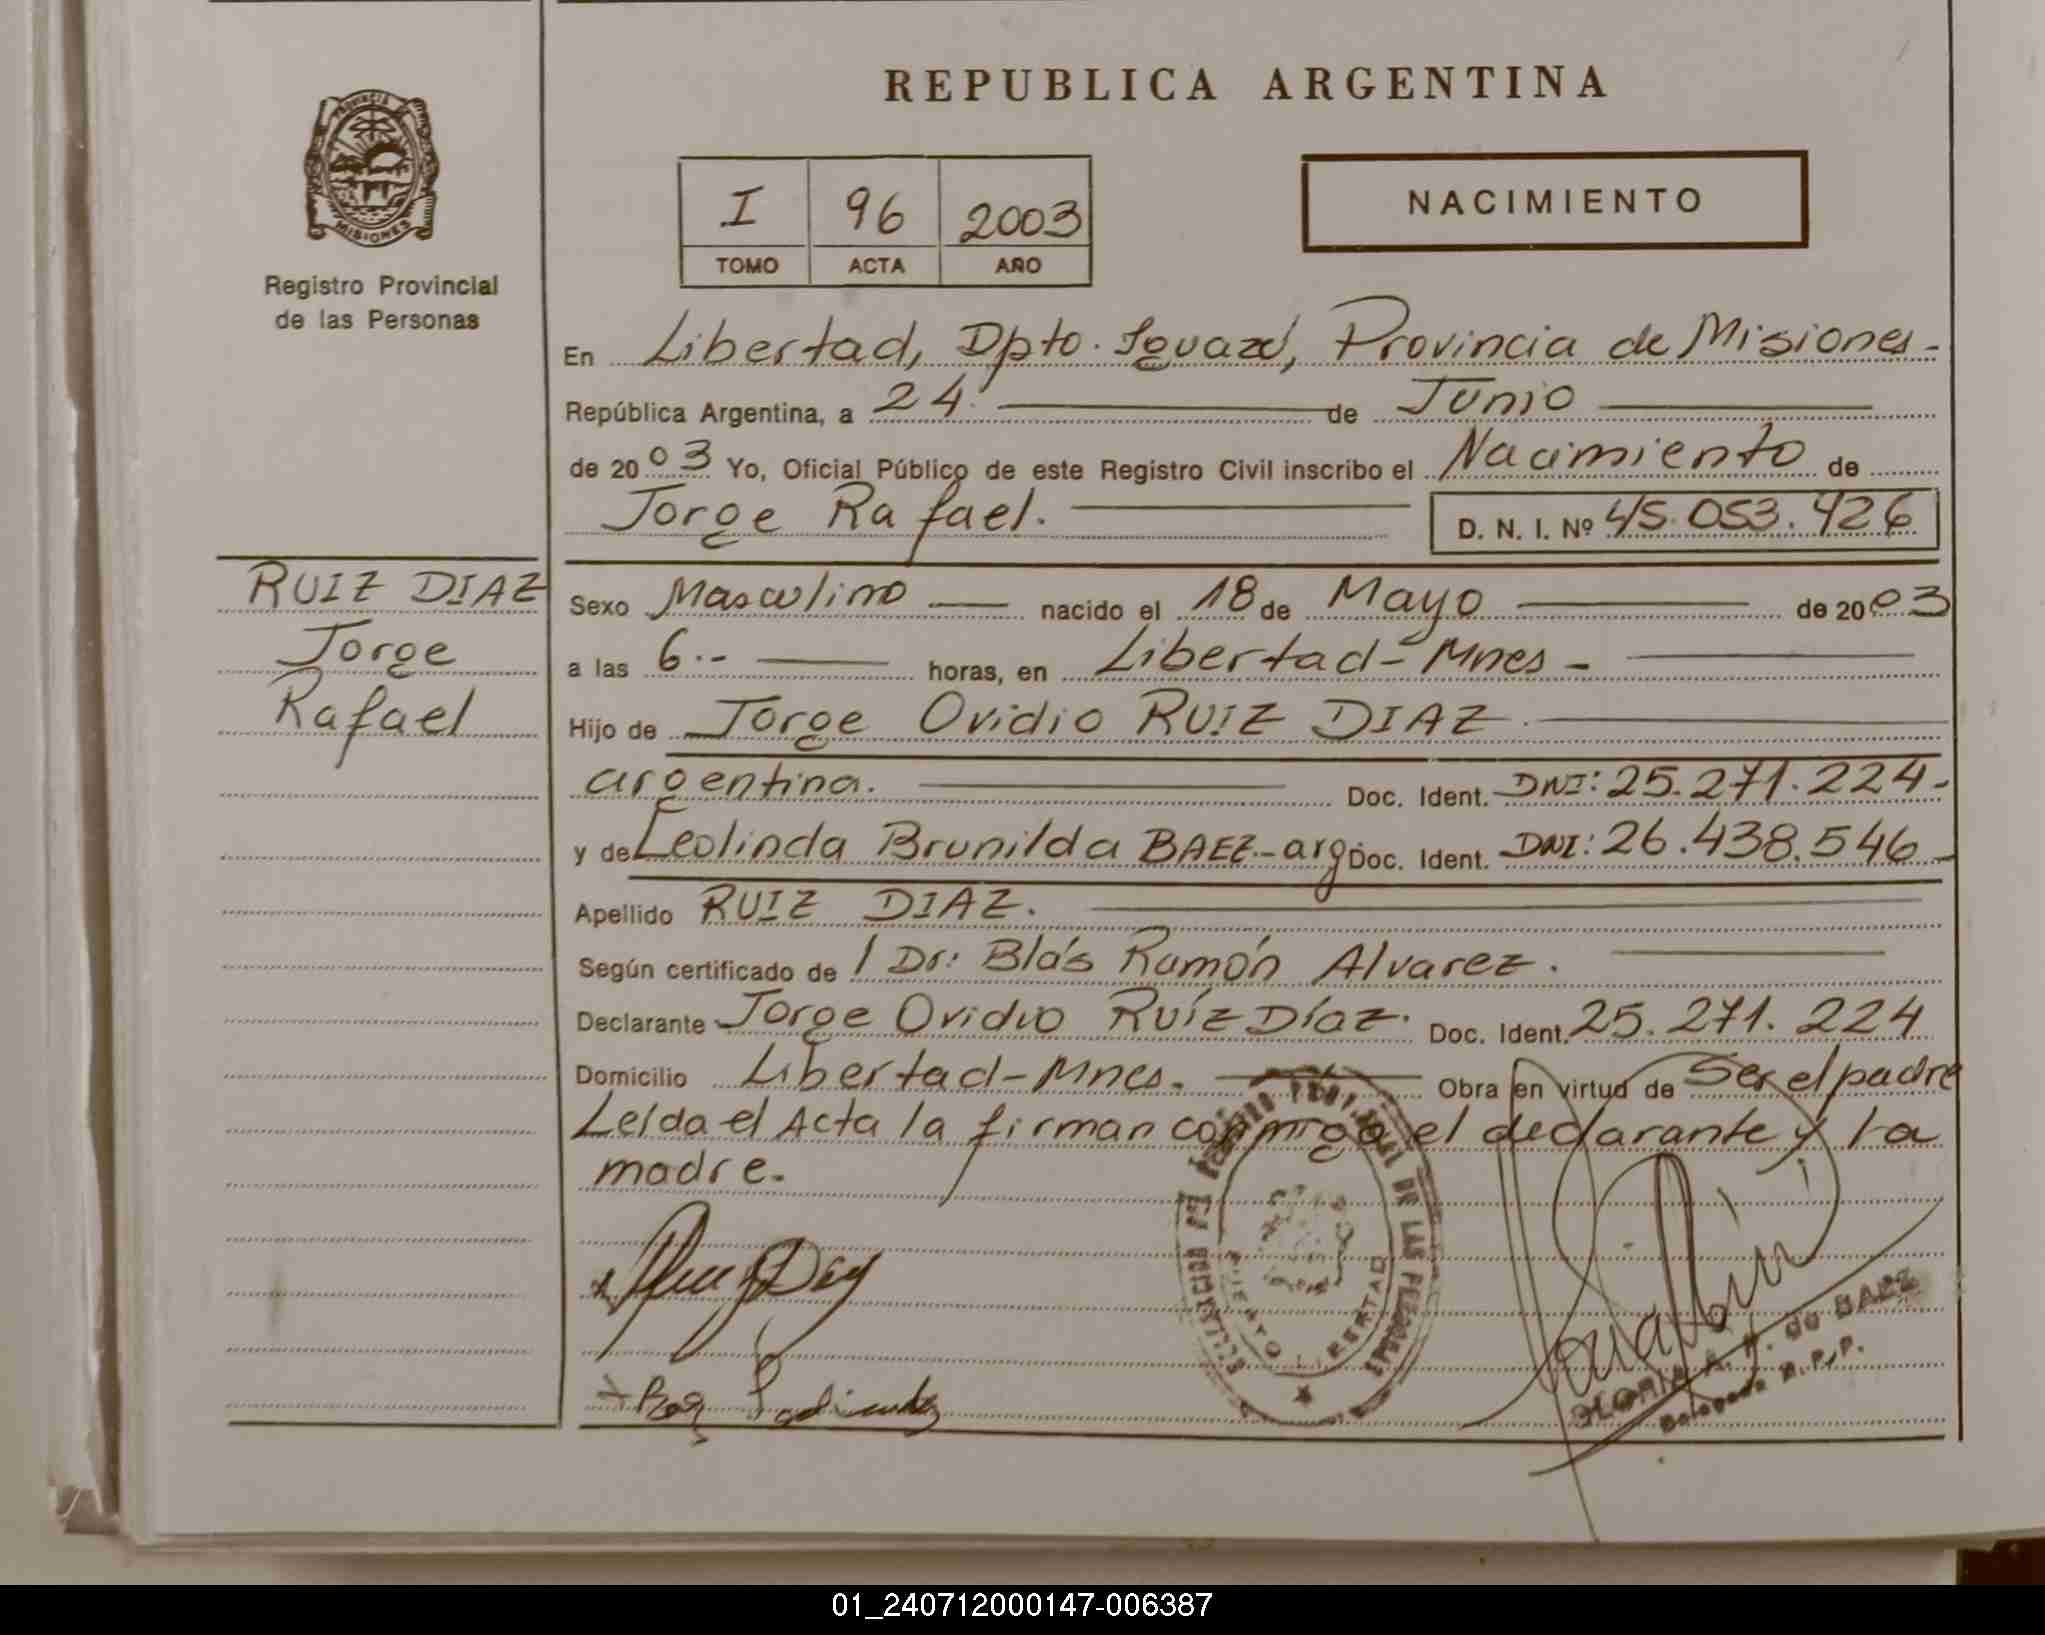 REPUBLICA ARGENTINA
PROVINCIA
MISIONES
Registro Provincial
de las Personas
I 96 2003
TOMO ACTA AÑO
NACIMIENTO
En Libertad, Dpto. Iguazú, Provincia de Misiones-
República Argentina, a 24 de Junio
de 2003 Yo, Oficial Público de este Registro Civil inscribo el Nacimiento de
Jorge Rafael. D. N. I. Nº 45.053.426
RUIZ DIAZ
Jorge
Rafael
Sexo Masculino nacido el 18 de Mayo de 2003
a las 6.- horas, en Libertad-Mnes-
Hijo de Jorge Ovidio RUIZ DIAZ
argentina. Doc. Ident. DNI: 25.271.224-
y de Leolinda Brunilda BAEZ.-arg Doc. Ident. DNI: 26.438.546-
Apellido RUIZ DIAZ.
Según certificado de / Dr: Blás Ramón Alvarez.
Declarante Jorge Ovidio Ruíz Díaz. Doc. Ident. 25.271.224
Domicilio Libertad-Mnes. Obra en virtud de Ser el padre
Leída el Acta la firman conmigo el declarante y la
madre.
DE LAS PERSONAS
LIBERTAD
GLORIA A. de BAEZ
Delegada R.P.P.
01_240712000147-006387